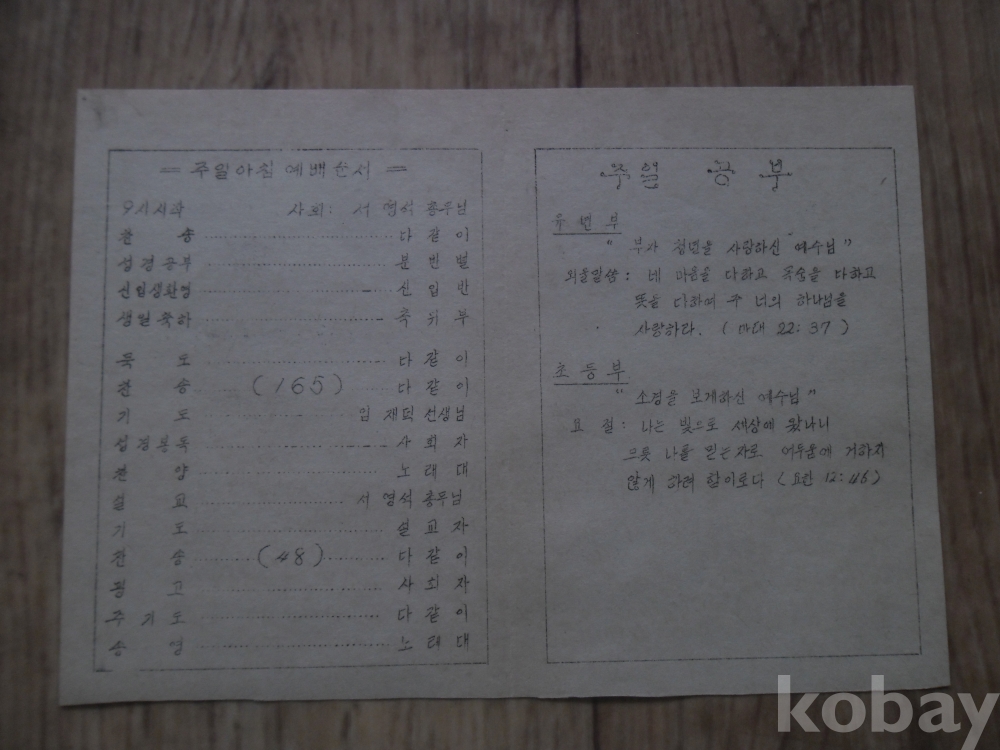 = 주일아침 예배순서 =
9시시작 사회: 서 영석 총무님
찬 송 다 같 이
성경공부 분 반 별
신입생환영 신 입 반
생일축하 종 위 부
묵 도 다 같 이
찬 송 (165) 다 같 이
기 도 임 재덕 선생님
성경봉독 사 회 자
찬 양 노 래 대
설 교 서 영석 총무님
기 도 설 교 자
찬 송 (48) 다 같 이
광 고 사 회 자
주 기 도 다 같 이
송 영 노 래 대
주일 공부
유년부
" 부자 청년을 사랑하신 예수님 "
외울말씀 : 네 마음을 다하고 목숨을 다하고
뜻을 다하여 주 너의 하나님을
사랑하라. ( 마태 22: 37 )
초등부
" 소경을 보게하신 예수님 "
요 절 : 나는 빛으로 세상에 왔나니
므릇 나를 믿는자로 어두움에 거하지
않게 하려 함이로다 ( 요한 12: 46 )
kobay